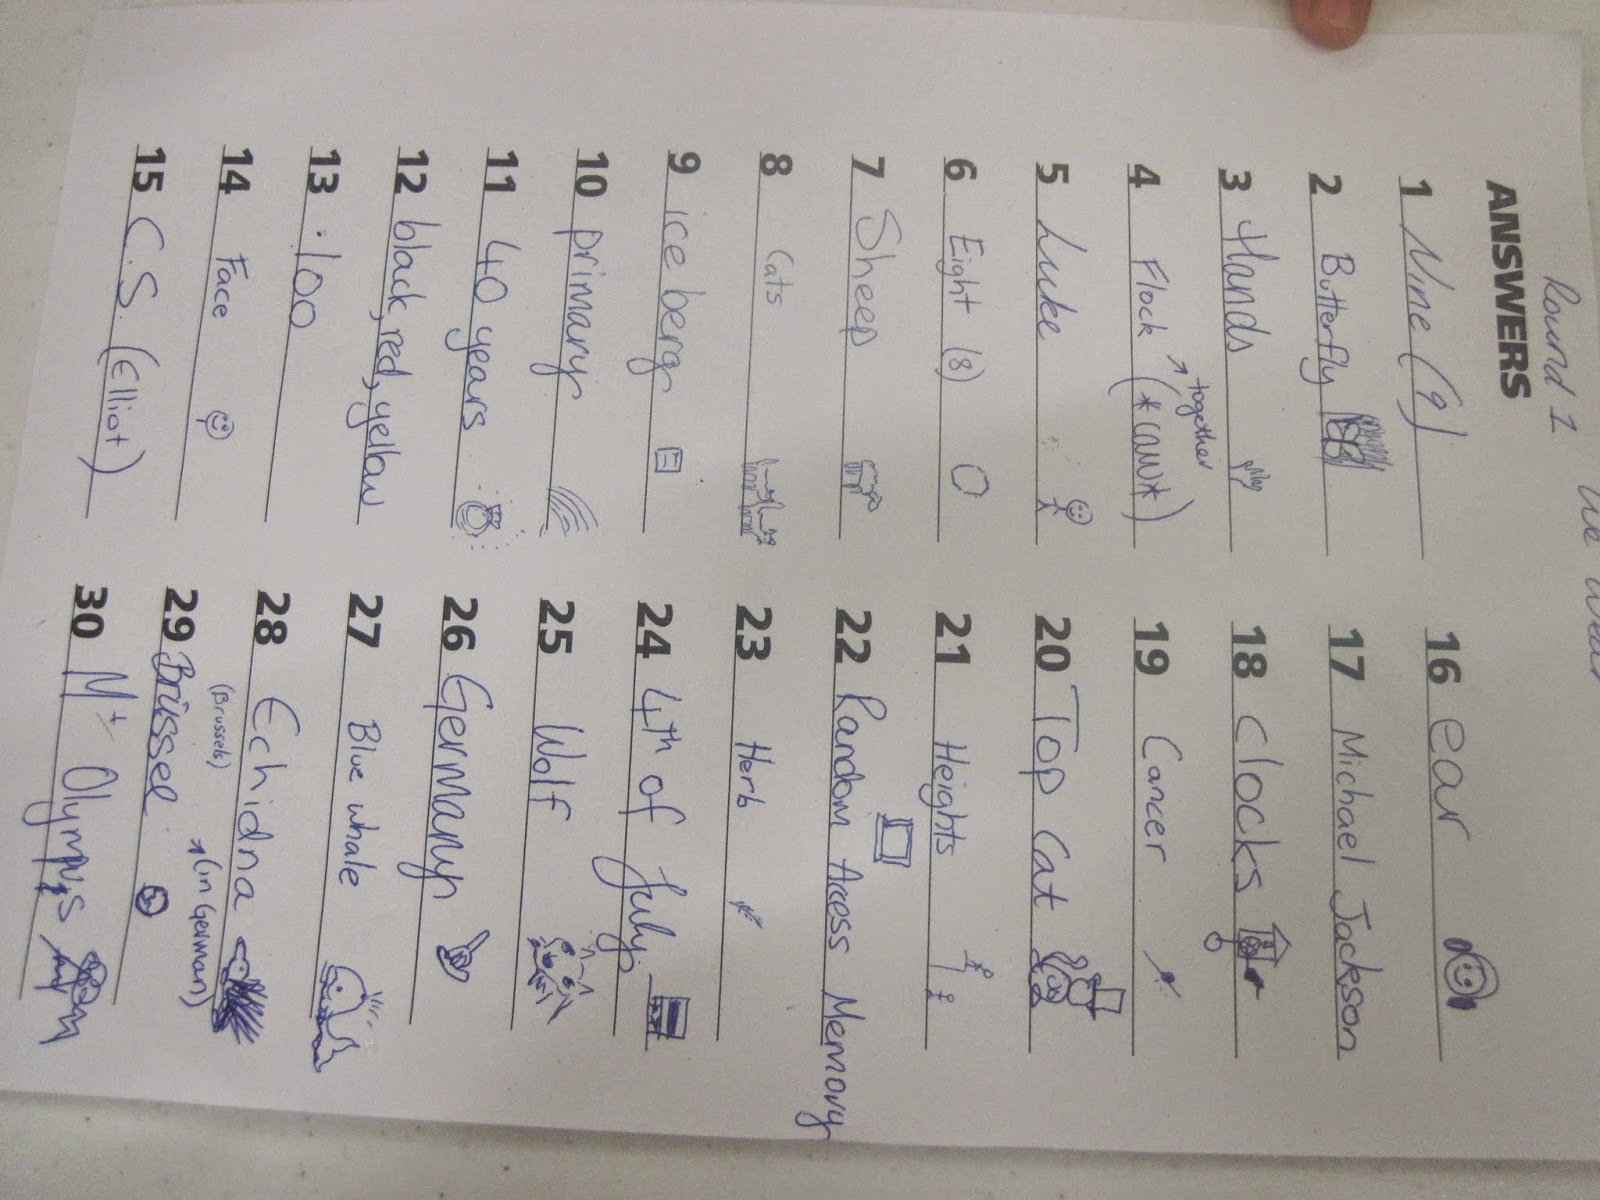 Round 1
We Wear
ANSWERS
1 Nine (9)
2 Butterfly
3 Hands
4 Flock (*caww*)
together
5 Luke
6 Eight (8)
7 Sheep
8 Cats
9 ice berg
10 primary
11 40 years
12 black, red, yellow
13 .100
14 Face
15 C.S. (Elliot)
16 ear
17 Michael Jackson
18 clocks
19 Cancer
20 Top Cat
21 Heights
22 Random Access Memory
23 Herb
24 4th of July.
25 Wolf
26 Germany
27 Blue whale
28 Echidna
(Brussels)
(in German)
29 Brüssel
30 Mt Olympus